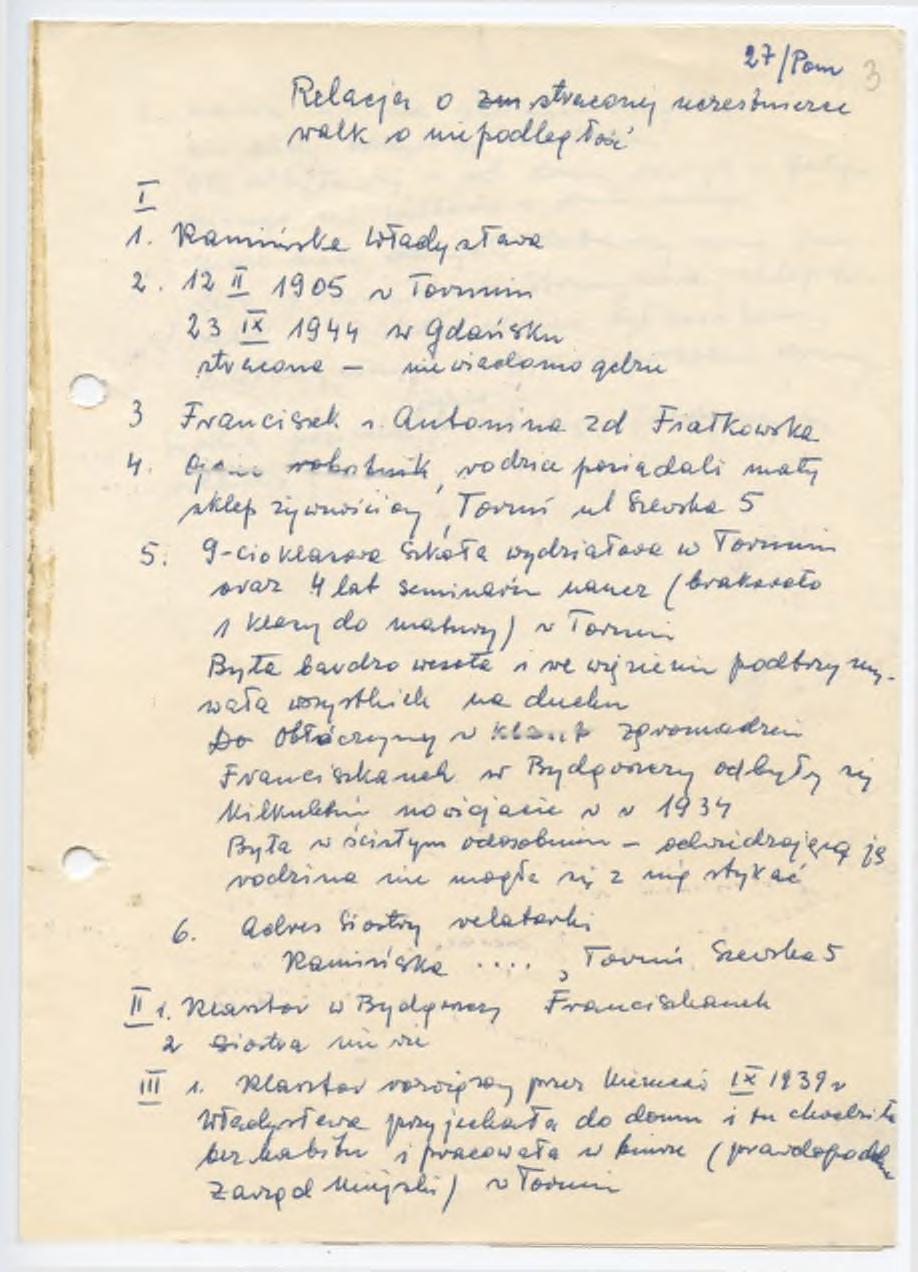 27/Pom 3
Relacja o zm. straconej uczestniczce
walk o niepodległość
I
1. Kamińska Władysława
2. 12 II 1905 w Toruniu
23 IX 1944 w Gdańsku
stracona — nie wiadomo gdzie
3 Franciszek i Antonina zd Fiałkowska
4. Ojciec robotnik, rodzice posiadali mały
sklep żywnościowy, Toruń ul Szewska 5
5. 9-cioklasowa Szkoła wydziałowa w Toruniu
oraz 4 lat seminarium naucz (brakowało
1 klasy do matury) w Toruniu
Była bardzo wesoła i we więzieniu podtrzymy-
wała wszystkich na duchu
Do Obłóczyny w zgromadzeniu
Franciszkanek w Bydgoszczy odbyły się
kilkuletnim nowicjacie w r 1934
Była w ścisłym odosobnieniu – odwiedzająca ją
rodzina nie mogła się z nią stykać
6. Adres Siostry relatorki
Kamińska ...., Toruń, Szewska 5
II 1. Klasztor w Bydgoszczy Franciszkanek
2 Siostra nie wie
III 1. Klasztor rozwiązany przez Niemców IX 1939 r
Władysława przyjechała do domu i tu chodziła
bez habitu i pracowała w biurze (prawdopodobnie
Zarząd Miejski) w Toruniu